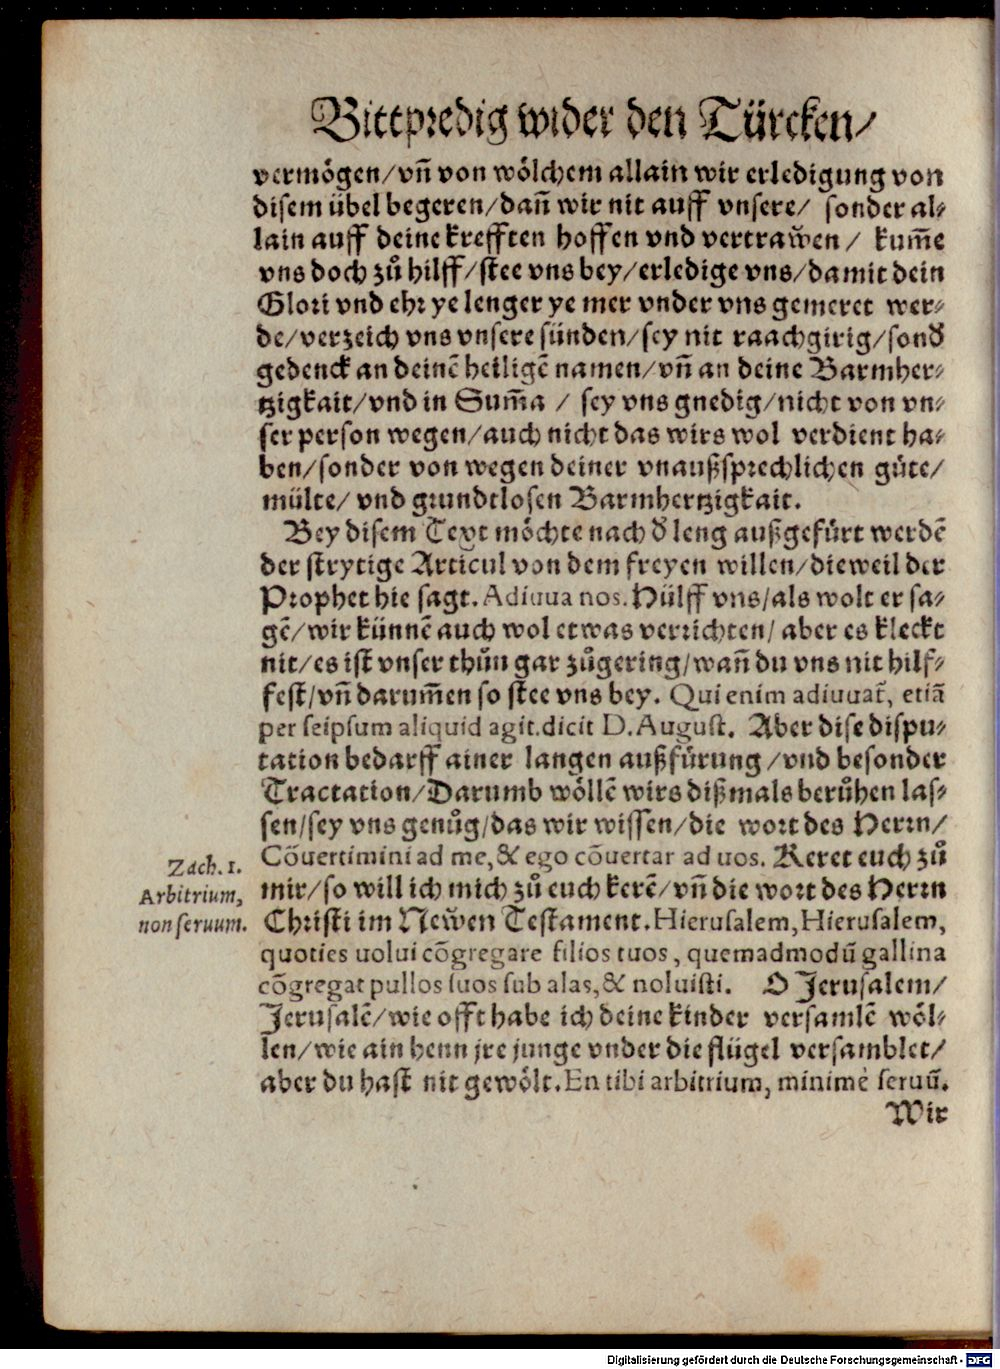 Bittpredig wider den Türcken/
vermögen/vñ von wölchem allain wir erledigung von
disem übel begeren/dañ wir nit auff vnsere/ sonder al⸗
lain auff deine krefften hoffen vnd vertraẅen/ kum̃e
vns doch zů hilff/stee vns bey/erledige vns/damit dein
Glori vnd ehr ye lenger ye mer vnder vns gemeret wer⸗
de/verzeich vns vnsere sünden/sey nit raachgirig/sonđ
gedenck an deinẽ heiligẽ namen/vñ an deine Barmher⸗
tzigkait/vnd in Sum̃a / sey vns gnedig/nicht von vn⸗
ser person wegen/auch nicht das wirs wol verdient ha⸗
ben/sonder von wegen deiner vnaußsprechlichen güte/
mülte/ vnd grundtlosen Barmhertzigkait.
Bey disem Text möchte nach đ leng außgefürt werdẽ
der strytige Articul von dem freyen willen/dieweil der
Prophet hie sagt. Adiuua nos. Hülff vns/als wolt er sa⸗
gẽ/wir künnẽ auch wol etwas verrichten/ aber es kleckt
nit/es ist vnser thůn gar zůgering/wañ du vns nit hilf⸗
fest/vñ darum̃en so stee vns bey. Qui enim adiuuat̃, etiã
per seipsum aliquid agit.dicit D. August. Aber dise dispu⸗
tation bedarff ainer langen außfürung/vnd besonder
Tractation/Darumb wöllẽ wirs dißmals berůhen las⸗
sen/sey vns genůg/das wir wissen/die wort des Herrn/
Cõuertimini ad me, & ego cõuertar ad uos. Keret euch zů
mir/so will ich mich zů euch kerẽ/vñ die wort des Herrn
Christi im Neẅen Testament. Hierusalem, Hierusalem,
quoties uolui cõgregare filios tuos, quemadmodũ gallina
cõgregat pullos suos sub alas, & noluisti. O Jerusalem/
Jerusalẽ/wie offt habe ich deine kinder versamlẽ wöl⸗
len/wie ain henn jre junge vnder die flügel versamblet/
aber du hast nit gewölt. En tibi arbitrium, minimè seruũ.
Wir
Zach. 1.
Arbitrium,
non seruum.
Digitalisierung gefördert durch die Deutsche Forschungsgemeinschaft - DFG